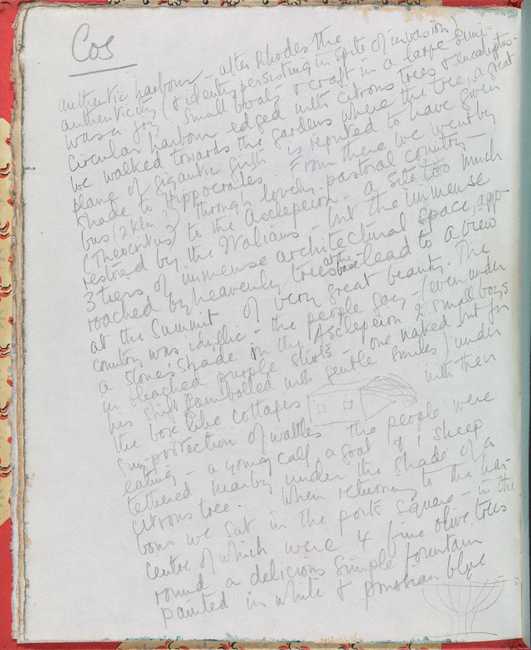 Cos
authentic harbour - after Rhodes the
authenticity (& identity persisting in spite of invasion)
was a joy. Small boats & craft in a large semi-
circular harbour edged with citrons trees & eucalyptus -
we walked towards the gardens where the tree, a great
plane of gigantic girth is reputed to have given
shade to Hippocrates. From there we went by
bus (2 klm ) through lovely pastoral country -
(Theocritus) to the Asclepeion - a site too much
restored by the Italians - but the immense
3 tiers of immense architectural space, app-
roached by heavenly trees at the base lead to a view
at the summit of very great beauty. The
country was idyllic - the people gay - (even under
a stones' shade in the Asclepeion 2 small boys
in bleached purple shirts - one naked but for
his shirt gambolled with gentle smiles) under
the box like cottages with their
sun-protection of wattles the people were
eating - a young calf, a goat & 1 sheep
tethered nearby under the shade of a
citrons tree. When returning to the har-
bour we sat in the port's square - in the
centre of which were 4 fine olive trees
round a delicious simple fountain
painted in white & prussian blue